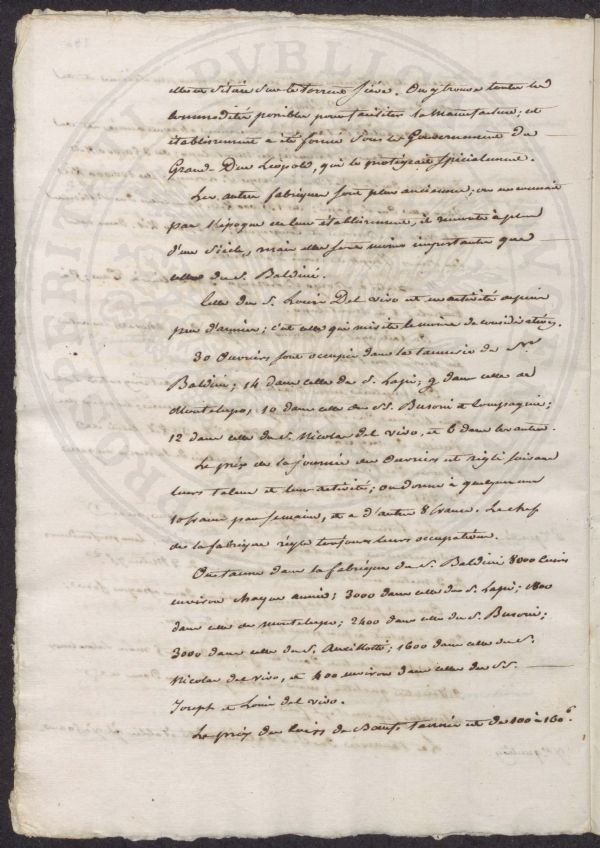 elle est située sur le torrent Piéve. On y trouve toutes les
commodités possibles pour faciliter la Manufacture; cet
établissement a été formé sous le Gouvernement du
Grand-Duc Léopold, qui le protégeait spécialement.
Les autres fabriques sont plus anciennes; on ne connait
pas l'époque de leur établissement, il remonte à plus
d'un siècle, mais elles sont moins importantes que
celle du S. Baldini.
Celle du S. Louis Del vivo est en activité depuis
peu d'années; c'est celle qui mérite le moins de considération.
30 Ouvriers sont occupés dans la tannerie de Sr.
Baldini; 14 dans celle du S. Lapi; 9 dans celle de
Montelupo, 10 dans celle des SS. Busoni et Compagnie;
12 dans celle du S. Nicolas del vivo, et 6 dans les autres.
Le prix de la journée des Ouvriers est réglé suivant
leurs talens et leur activité; on donne à quelques uns
10 francs par semaine, et à d'autres 8 francs. Le chef
de la fabrique règle toujours leurs occupations.
On tanne dans la fabrique du S. Baldini 8000 Cuirs
environ chaque année; 3000 dans celle du S. Lapi; 1800
dans celle de Montelupo; 2400 dans celle du S. Busoni;
3000 dans celle du S. 1600 dans celle du S.
Nicolas del vivo, et 400 environ dans celle des SS.
Joseph et Louis del vivo.
Le prix des Cuirs de Bœufs tannés est de 100 à 160 f.